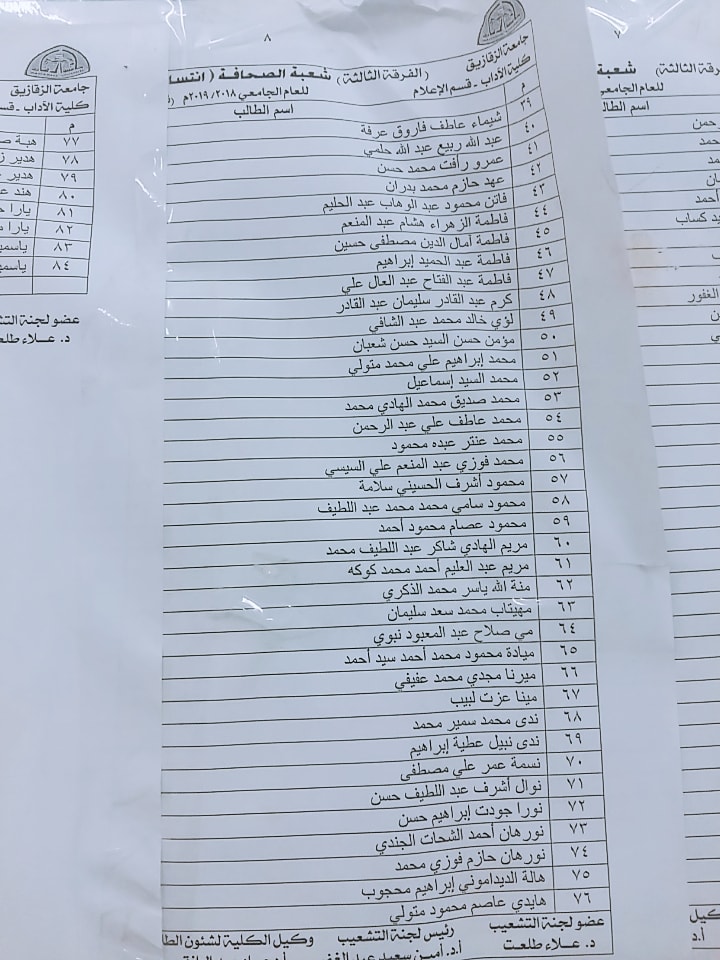 ٧
الفرقة الثالثة) شعبة
للعام الجامعي
اسم الطالب
حمن
محمد
مد
ان
أحمد
يد كساب
الغفور
٨
جامعة الزقازيق
كلية الآداب - قسم الإعلام
(الفرقة الثالثة) شعبة الصحافة (انتسا
للعام الجامعي ٢٠١٩/٢٠١٨م
م اسم الطالب
٣٩ شيماء عاطف فاروق عرفة
٤٠ عبد الله ربيع عبد الله حلمي
٤١ عمرو رأفت محمد حسن
٤٢ عهد حازم محمد بدران
٤٣ فاتن محمود عبد الوهاب عبد الحليم
٤٤ فاطمة الزهراء هشام عبد المنعم
٤٥ فاطمة آمال الدين مصطفى حسين
٤٦ فاطمة عبد الحميد إبراهيم
٤٧ فاطمة عبد الفتاح عبد العال علي
٤٨ كرم عبد القادر سليمان عبد القادر
٤٩ لؤي خالد محمد عبد الشافي
٥٠ مؤمن حسن السيد حسن شعبان
٥١ محمد إبراهيم علي محمد متولي
٥٢ محمد السيد إسماعيل
٥٣ محمد صديق محمد الهادي محمد
٥٤ محمد عاطف علي عبد الرحمن
٥٥ محمد عنتر عبده محمود
٥٦ محمد فوزي عبد المنعم علي السيسي
٥٧ محمود أشرف الحسيني سلامة
٥٨ محمود سامي محمد محمد عبد اللطيف
٥٩ محمود عصام محمود أحمد
٦٠ مريم الهادي شاكر عبد اللطيف محمد
٦١ مريم عبد العليم أحمد محمد كوكه
٦٢ منة الله ياسر محمد الذكري
٦٣ مهيتاب محمد سعد سليمان
٦٤ مي صلاح عبد المعبود نبوي
٦٥ ميادة محمود محمد أحمد سيد أحمد
٦٦ ميرنا مجدي محمد عفيفي
٦٧ مينا عزت لبيب
٦٨ ندى محمد سمير محمد
٦٩ ندى نبيل عطية إبراهيم
٧٠ نسمة عمر علي مصطفى
٧١ نوال أشرف عبد اللطيف حسن
٧٢ نورا جودت إبراهيم حسن
٧٣ نورهان أحمد الشحات الجندي
٧٤ نورهان حازم فوزي محمد
٧٥ هالة الديداموني إبراهيم محجوب
٧٦ هايدي عاصم محمود متولي
عضو لجنة التشعيب رئيس لجنة التشعيب وكيل الكلية لشئون الطا
د. علاء طلعت أ.د. أمين سعيد عبد الغف
جامعة الزقازيق
كلية الآداب - قسم
م
٧٧ هبة ص
٧٨ هدير ز
٧٩ هدير
٨٠ هند ع
٨١ يارا
٨٢ يارا
٨٣ ياسم
٨٤ ياسم
عضو لجنة التش
د. علاء طلعت